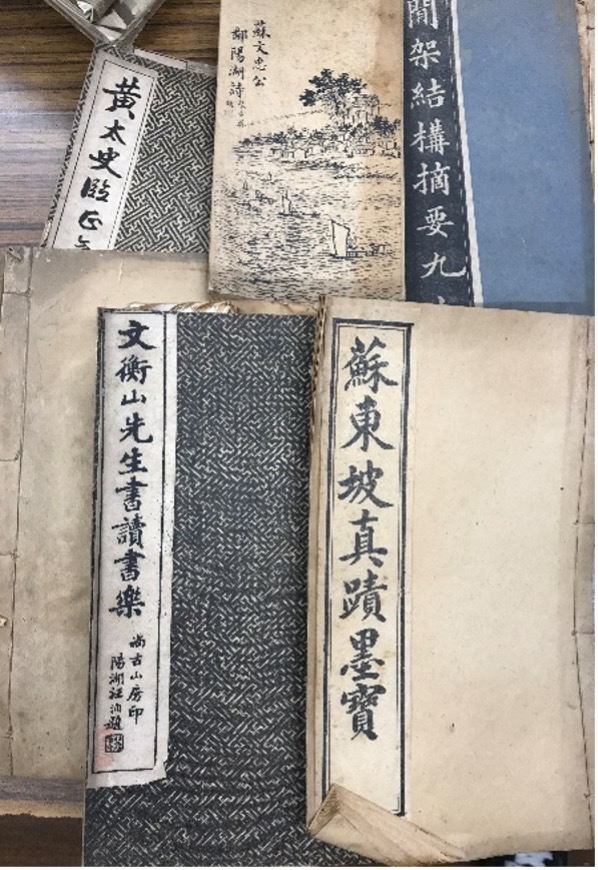 間架結構摘要九
蘇文忠公
鄱陽湖詩
黃太史臨
蘇東坡真蹟墨寶
文衡山先生書讀書樂
尚古山房印
陽湖汪洵題